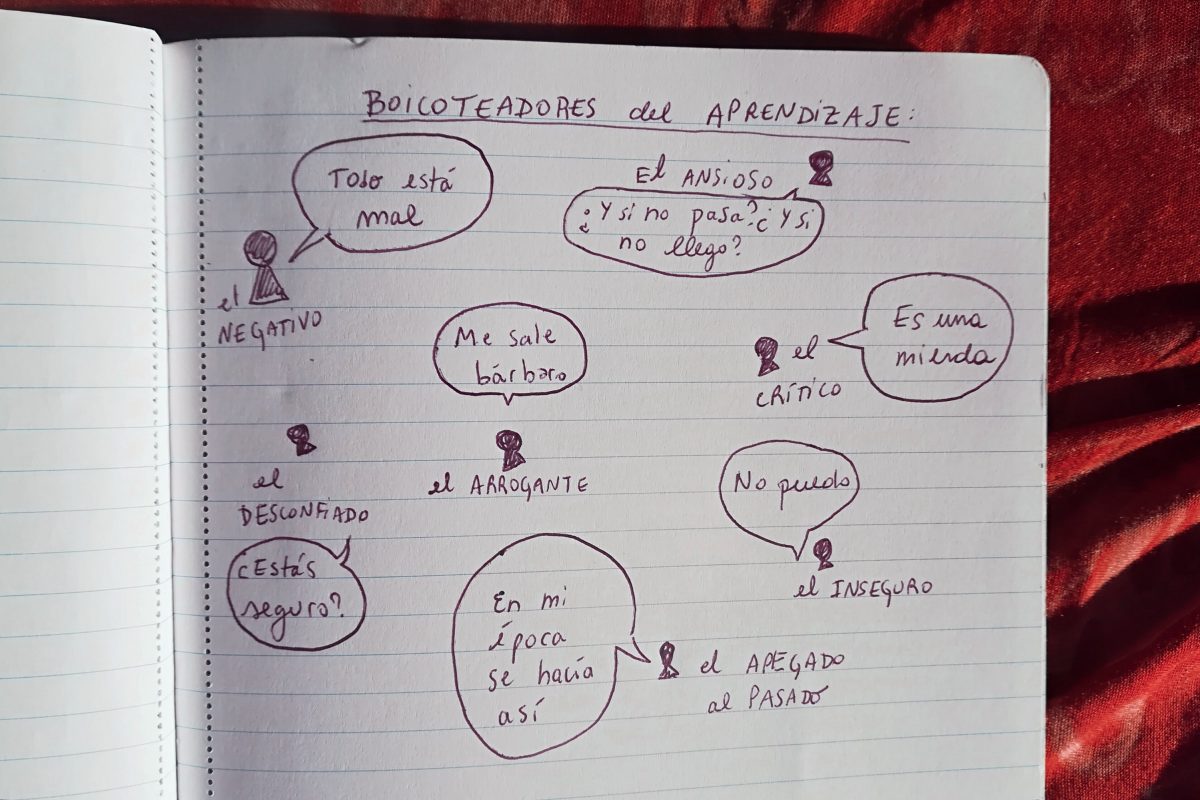 BOICOTEADORES del APRENDIZAJE:
Todo está
mal
el
NEGATIVO
El ANSIOSO
¿Y si no pasa? ¿Y si
no llego?
Me sale
bárbaro
el ARROGANTE
Es una
mierda
el
CRÍTICO
el
DESCONFIADO
¿Estás
seguro?
No puedo
el INSEGURO
En mi
época
se hacía
así
el APEGADO
al PASADO